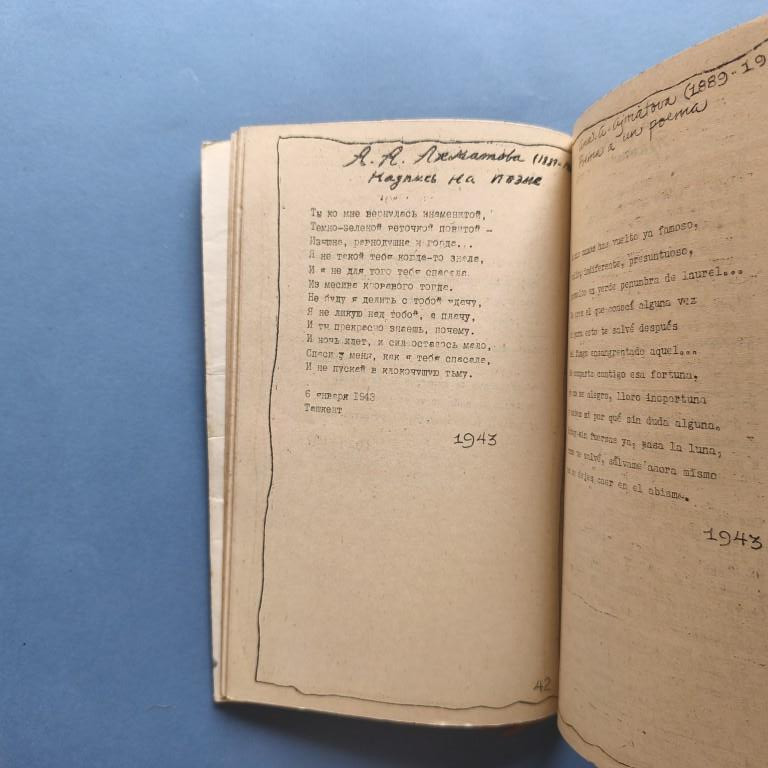 А. А. Ахматова (1889-
Надпись на поэме
Ты ко мне вернулась знаменитой,
Темно-зеленой веточкой повитой –
Изящна, равнодушна и горда...
Я не такой тебя когда-то знала,
И я не для того тебя спасала
Из месива кровавого тогда.
Не буду я делить с тобой удачу,
Я не ликую над тобой, а плачу,
И ты прекрасно знаешь, почему.
И ночь идет, и сил осталось мало,
Спаси ж меня, как я тебя спасала,
И не пускай в клокочущую тьму.
6 января 1943
Ташкент
1943
42
A. Ajmátova (1889-19
Poema a un poema
has vuelto ya famoso,
indiferente, presuntuoso,
verde penumbra de laurel...
el que conocí alguna vez
para esto te salvé después
fango ensangrentado aquel...
comparto contigo esa fortuna,
me alegro, lloro inoportuna
por qué sin duda alguna.
sin fuerzas ya; pasa la luna,
salvé, sálvame ahora mismo
dejes caer en el abismo.
1943